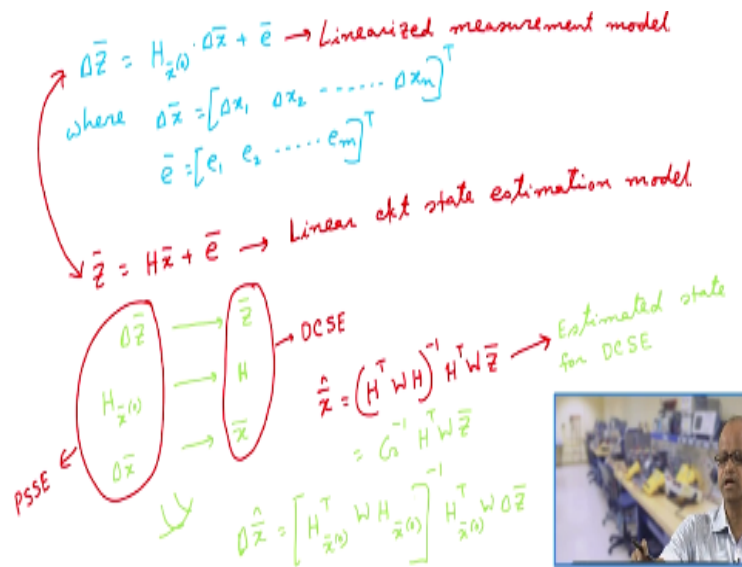 Δz̄ = H_x̄⁽⁰⁾ · Δx̄ + ē → Linearized measurement model
where Δx̄ = [Δx₁ Δx₂ ...... Δxₙ]ᵀ
ē = [e₁ e₂ ..... eₘ]ᵀ
z̄ = Hx̄ + ē → Linear ckt state estimation model
Δz̄ → z̄
→ DCSE
H_x̄⁽⁰⁾ → H
Δx̄ → x̄
PSSE
x̄̂ = (Hᵀ W H)⁻¹ Hᵀ W z̄ → Estimated state
for DCSE
= G⁻¹ Hᵀ W z̄
Δx̄̂ = [Hᵀ_x̄⁽⁰⁾ W H_x̄⁽⁰⁾]⁻¹ Hᵀ_x̄⁽⁰⁾ W Δz̄